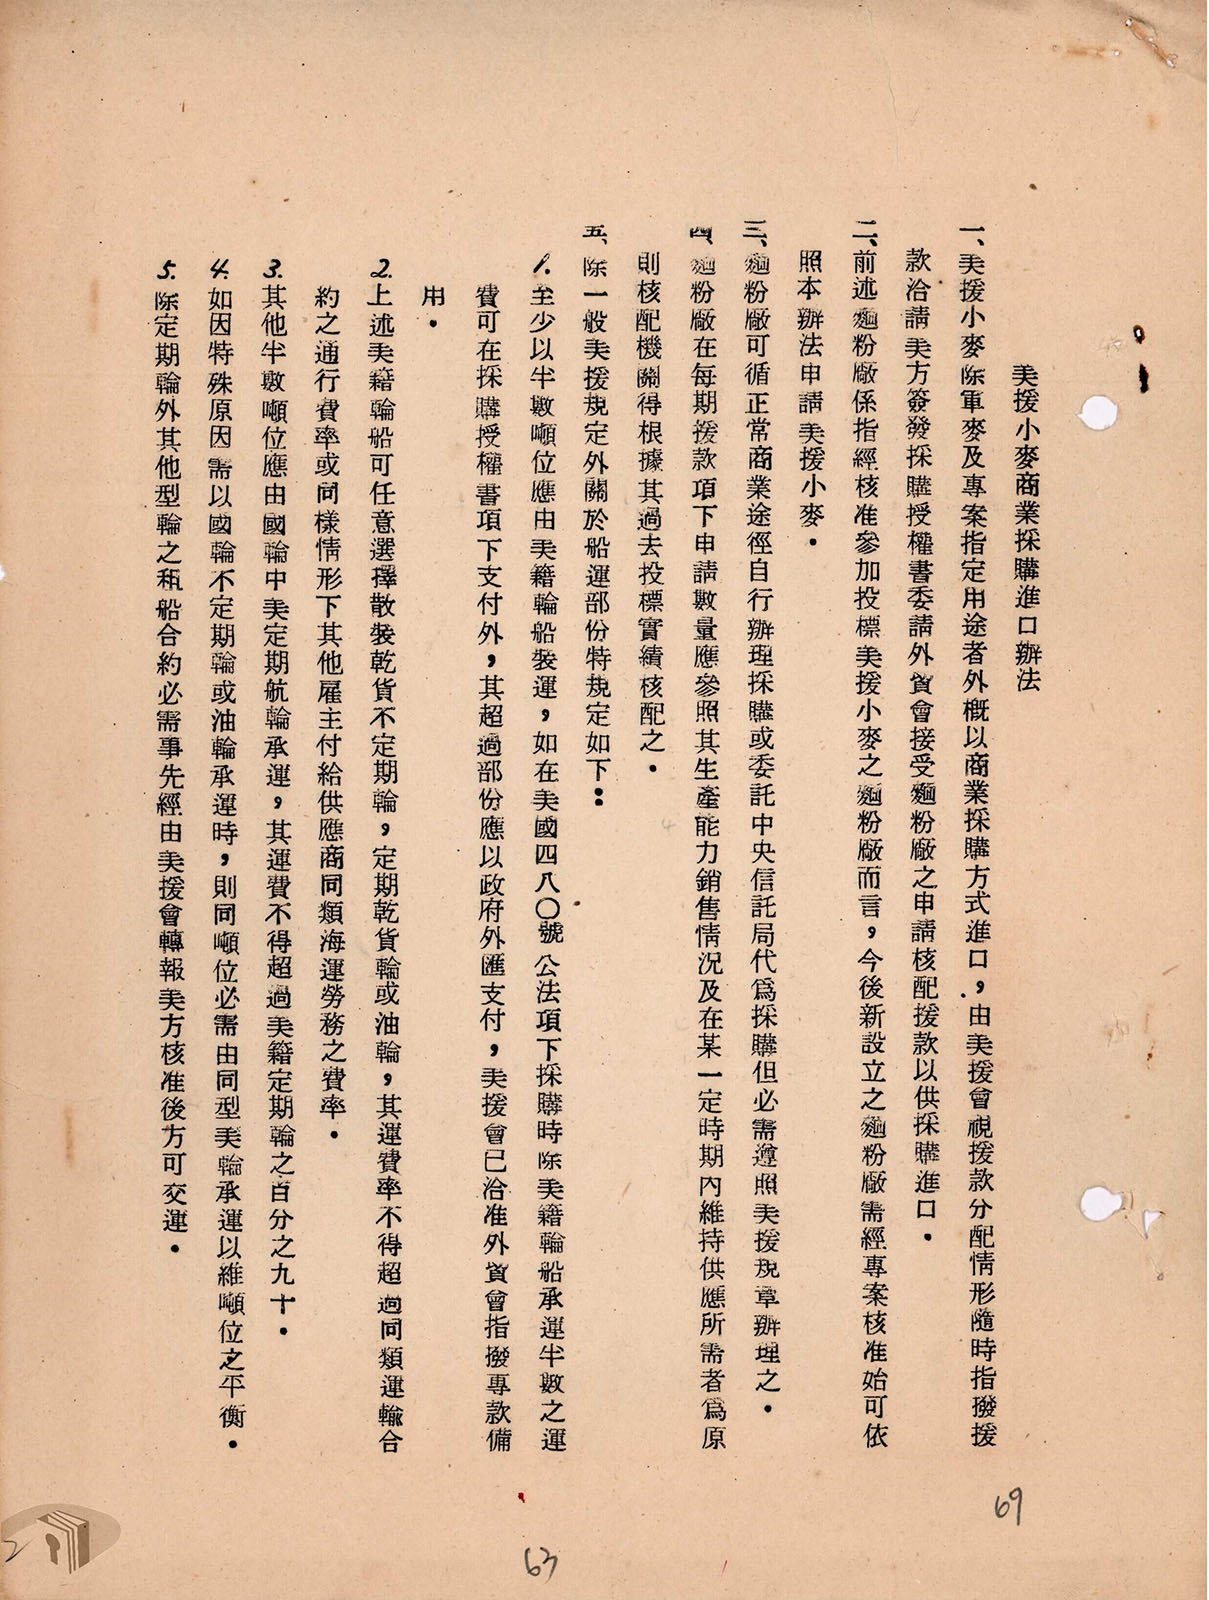 美援小麥商業採購進口辦法
一、美援小麥除軍麥及專案指定用途者外概以商業採購方式進口，由美援會視援款分配情形隨時指撥援
款洽請美方簽發採購授權書委請外貿會接受麵粉廠之申請核配援款以供採購進口．
二、前述麵粉廠係指經核准參加投標美援小麥之麵粉廠而言，今後新設立之麵粉廠需經專案核准始可依
照本辦法申請美援小麥．
三、麵粉廠可循正常商業途徑自行辦理採購或委託中央信託局代為採購但必需遵照美援規章辦理之．
四、麵粉廠在每期援款項下申請數量應參照其生產能力銷售情況及在某一定時期內維持供應所需者為原
則核配機關得根據其過去投標實績核配之．
五、除一般美援規定外關於船運部份特規定如下：
1.至少以半數噸位應由美籍輪船裝運，如在美國四八〇號公法項下採購時除美籍輪船承運半數之運
費可在採購授權書項下支付外，其超過部份應以政府外匯支付，美援會已洽准外貿會指撥專款備
用．
2.上述美籍輪船可任意選擇散裝乾貨不定期輪，定期乾貨輪或油輪，其運費率不得超過同類運輸合
約之通行費率或同樣情形下其他雇主付給供應商同類海運勞務之費率．
3.其他半數噸位應由國輪中美定期航輪承運，其運費不得超過美籍定期輪之百分之九十．
4.如因特殊原因需以國輪不定期輪或油輪承運時，則同噸位必需由同型美輪承運以維噸位之平衡．
5.除定期輪外其他型輪之租船合約必需事先經由美援會轉報美方核准後方可交運．
69
63
2